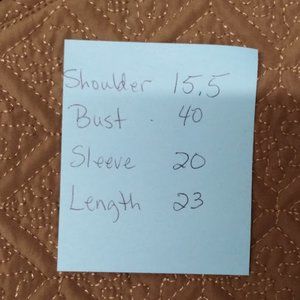 Shoulder 15.5
Bust. 40
Sleeve 20
Length 23